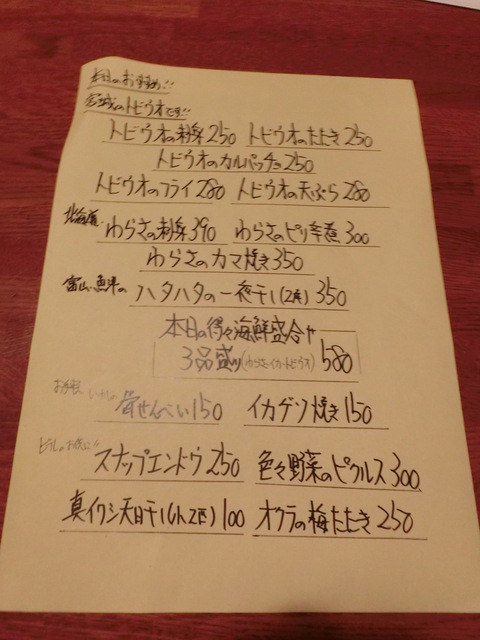 本日のお手頃!!
宮城のトビウオです!!
トビウオの刺身250 トビウオのたたき250
トビウオのカルパッチョ250
トビウオのフライ280 トビウオの天ぷら280
北海道 わらさの刺身390 わらさのピリ辛煮300
わらさのカマ焼き350
富山・魚津の ハタハタの一夜干し(2尾)350
本日の得々海鮮盛合せ
3品盛り(わらさ・イカ・トビウオ)580
お手軽 骨せんべい150 イカゲソ焼き150
ビールのお供に!! スナップエンドウ250 色々野菜のピクルス300
真イワシ天日干し(1人2匹)100 オクラの梅たたき250